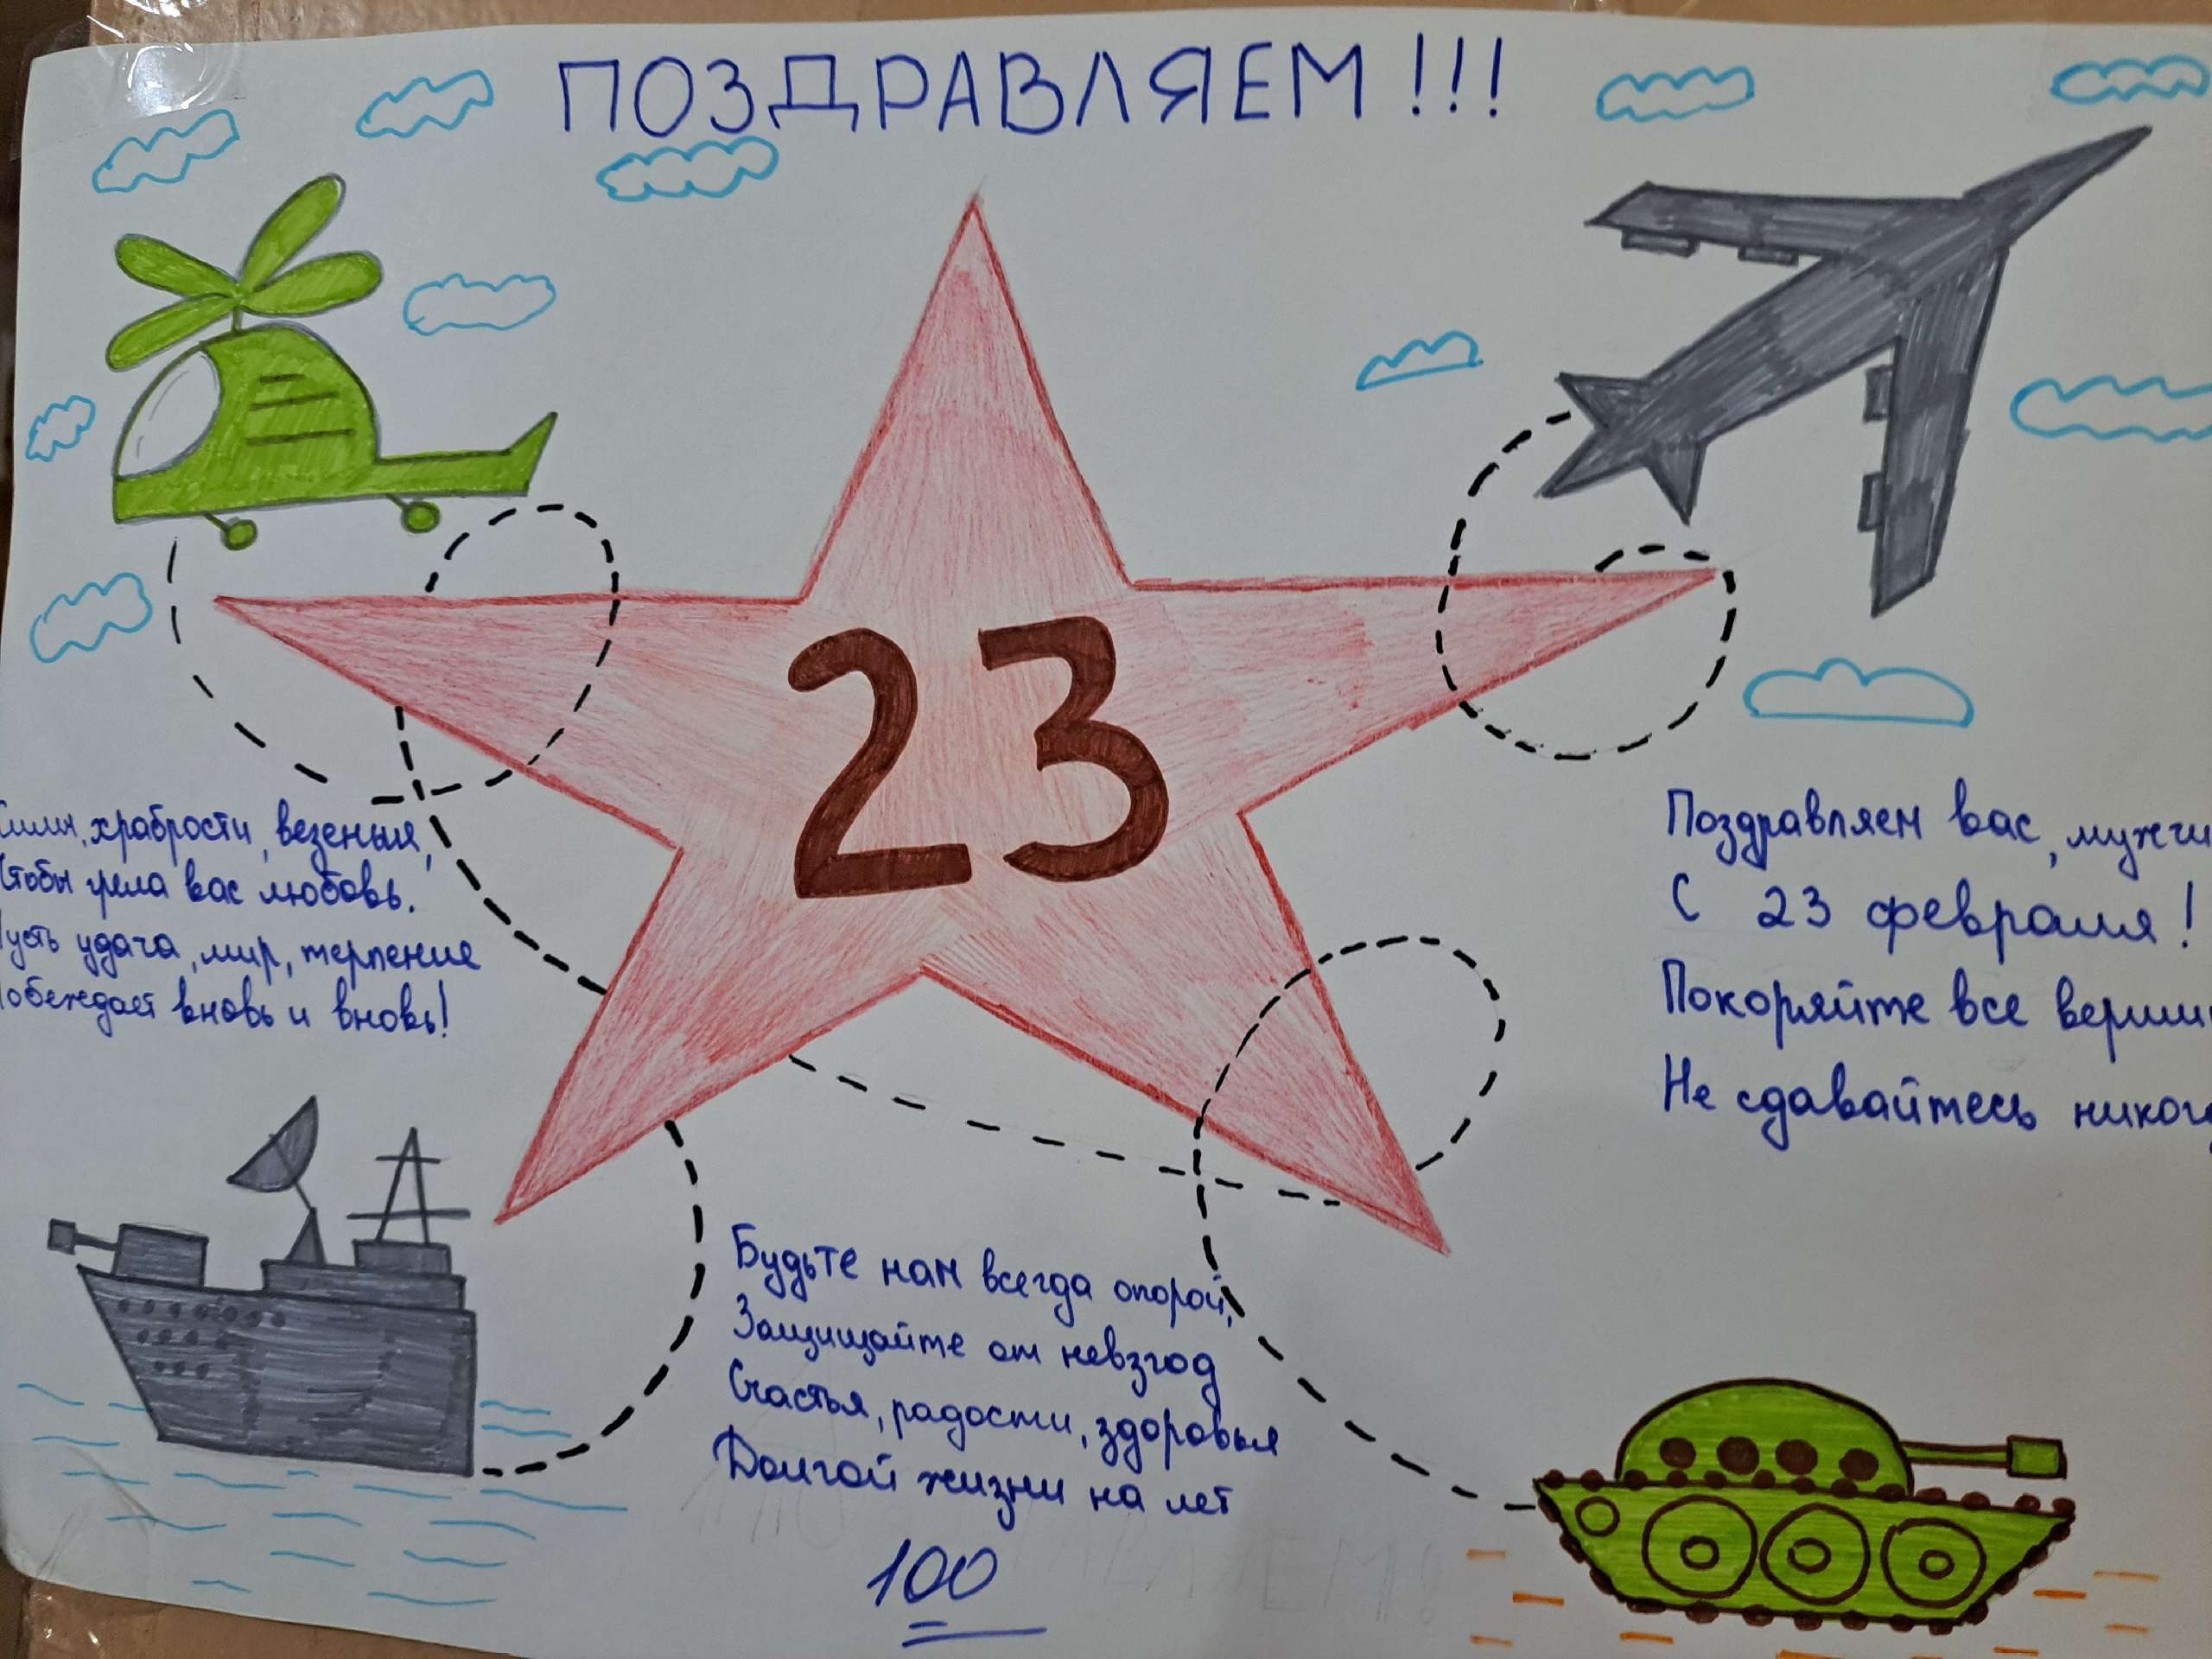 ПОЗДРАВЛЯЕМ!!!
23
Силы, храбрости, везенья,
Чтобы грела вас любовь.
Пусть удача, мир, терпение
Побеждает вновь и вновь!
Поздравляем вас,
С 23 февраля!
Покоряйте все
Не сдавайтесь
Будьте нам всегда опорой,
Защищайте от невзгод
Счастья, радости, здоровья
Долгой жизни на лет
100